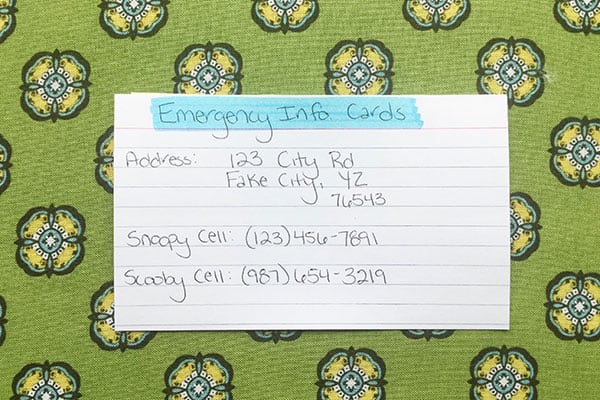 Emergency Info Cards
Address: 123 City Rd
Fake City, YZ
76543
Snoopy Cell: (123)456-7891
Scooby Cell: (987)654-3219